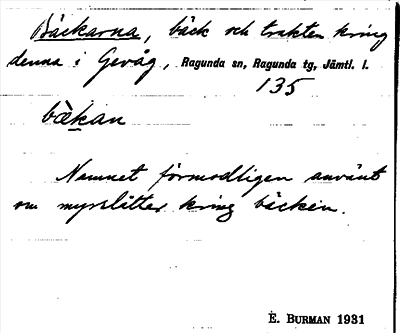 Bäckarna, bäck och trakten kring
denna i Gevåg, Ragunda sn, Ragunda tg, Jämtl. l.
135
bæ̀kan
Namnet förmodligen använt
om myrslåtter kring bäcken.
E. BURMAN 1931